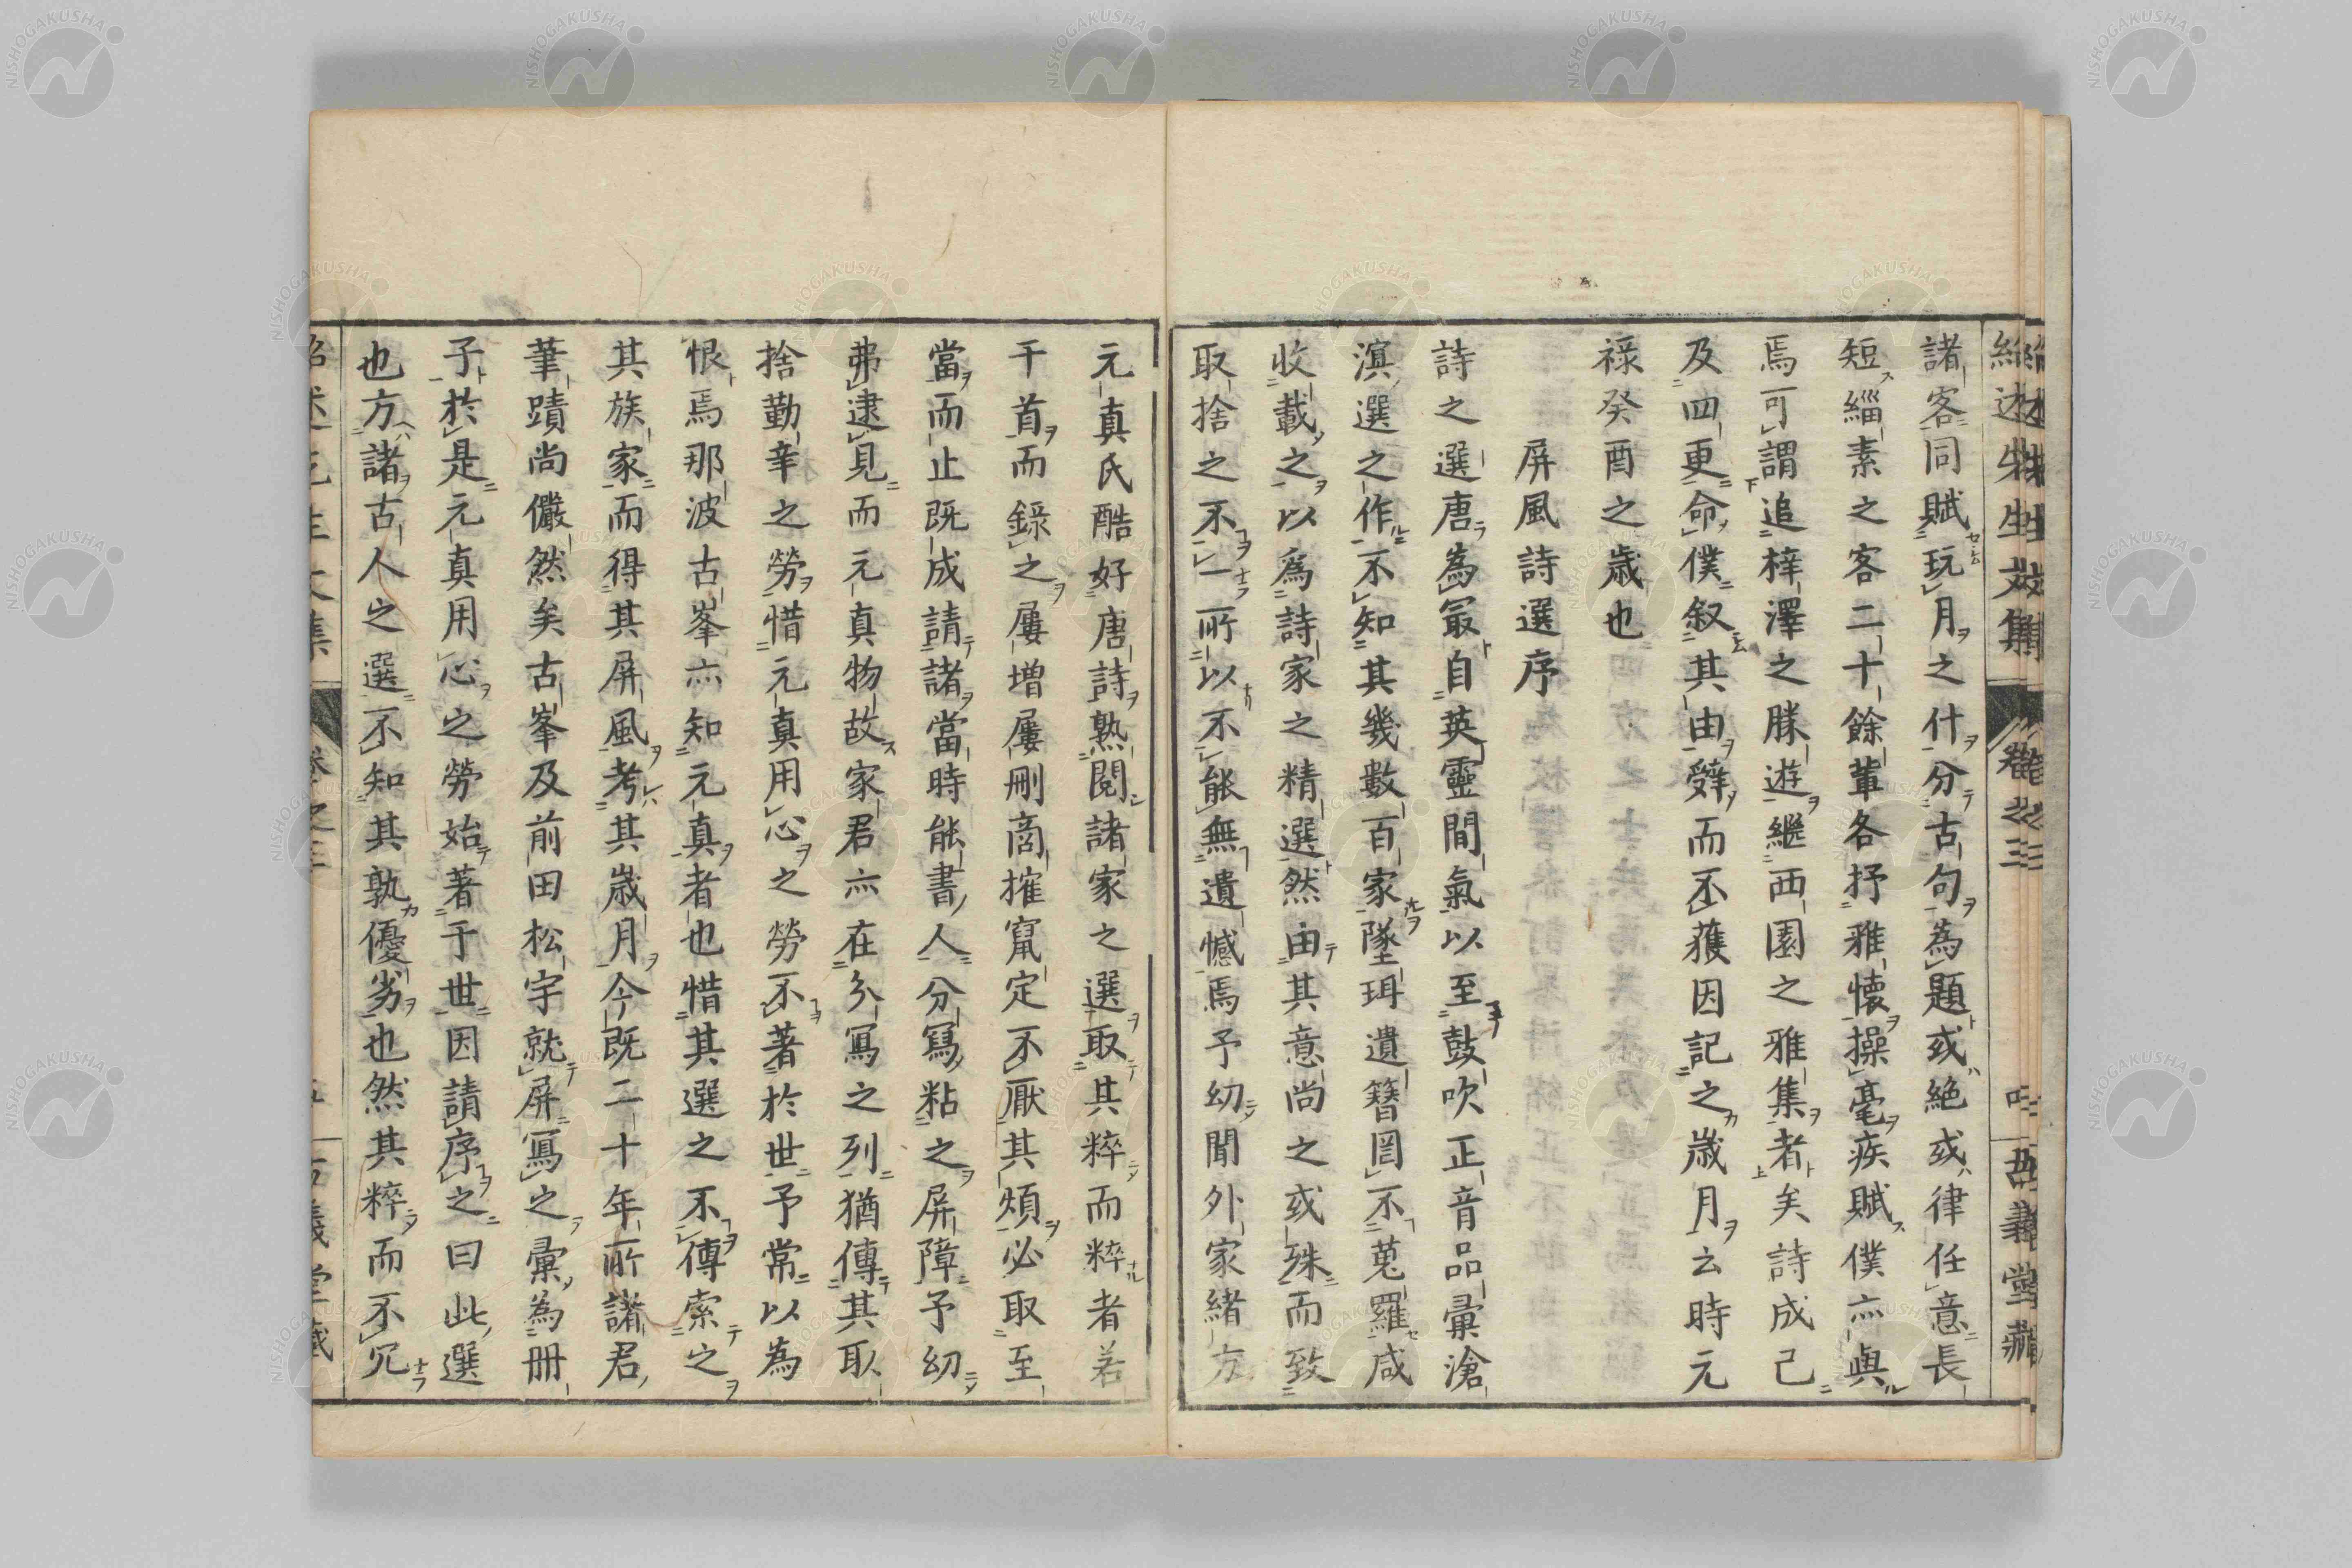 諸客同賦玩月之什分古句為題或絶或律任意長
短緇素之客二十餘輩各抒雅懐操毫疾賦僕亦與
焉可謂追梓澤之勝遊継西園之雅集者矣詩成已
及四更命僕叙其由辤而不獲因記之歳月云時元
禄癸酉之歳也
屏風詩選序
詩之選唐為最自英靈間氣以至鼓吹正音品彙滄
溟選之作不知其幾數百家墜珥遺簪罔不蒐羅咸
收載之以為詩家之精選然由其意尚之或殊而致
取捨之不一所以不能無遺憾焉予幼聞外家緒方
元真氏酷好唐詩熟閲諸家之選取其粹而粹者若
干首而錄之屢増屢刪商搉竄定不厭其煩必取至
當而止既成請諸當時能書人分寫粘之屏障予幼
弗逮見而元真物故家君亦在分寫之列猶傳其取
捨勤辛之勞惜元真用心之勞不著於世予常以為
恨焉那波古峯亦知元真者也惜其選之不傳索之
其族家而得其屏風考其歳月今既二十年所諸君
筆蹟尚儼然矣古峯及前田松宇就屏寫之彙為冊
子於是元真用心之勞始著于世因請序之曰此選
也方諸古人之選不知其孰優劣也然其粹而不冗
卷之三
古義堂藏